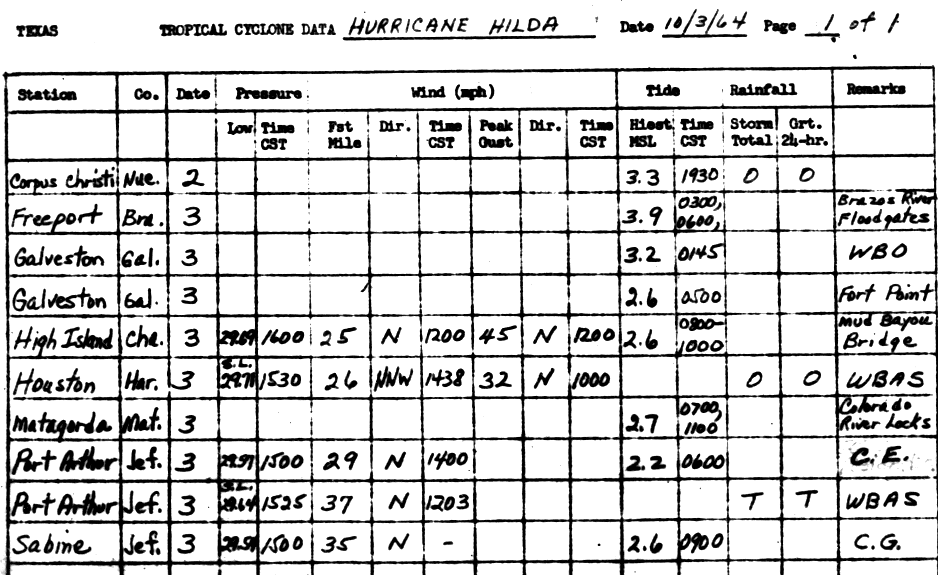 TEXAS TROPICAL CYCLONE DATA HURRICANE HILDA Date 10/3/64 Page 1 of 1
Station Co. Date Pressure Wind (mph) Tide Rainfall Remarks
Low Time CST Fst Mile Dir. Time CST Peak Gust Dir. Time CST Hiest MSL Time CST Storm Total Grt. 24-hr.
Corpus Christi Nue. 2 3.3 1930 0 0
Freeport Bra. 3 3.9 0300, 0600, Brazos River Floodgates
Galveston Gal. 3 3.2 0145 WBO
Galveston Gal. 3 2.6 0500 Fort Point
High Island Cha. 3 29.69 1600 25 N 1200 45 N 1200 2.6 0800-1000 Mud Bayou Bridge
Houston Har. 3 S.L. 29.78 1530 26 NNW 1438 32 N 1000 0 0 WBAS
Matagorda Mat. 3 2.7 0700, 1100 Colorado River Locks
Port Arthur Jef. 3 29.57 1500 29 N 1400 2.2 0600 C.E.
Port Arthur Jef. 3 S.L. 29.64 1525 37 N 1203 T T WBAS
Sabine Jef. 3 1500 35 N - 2.6 0900 C.G.